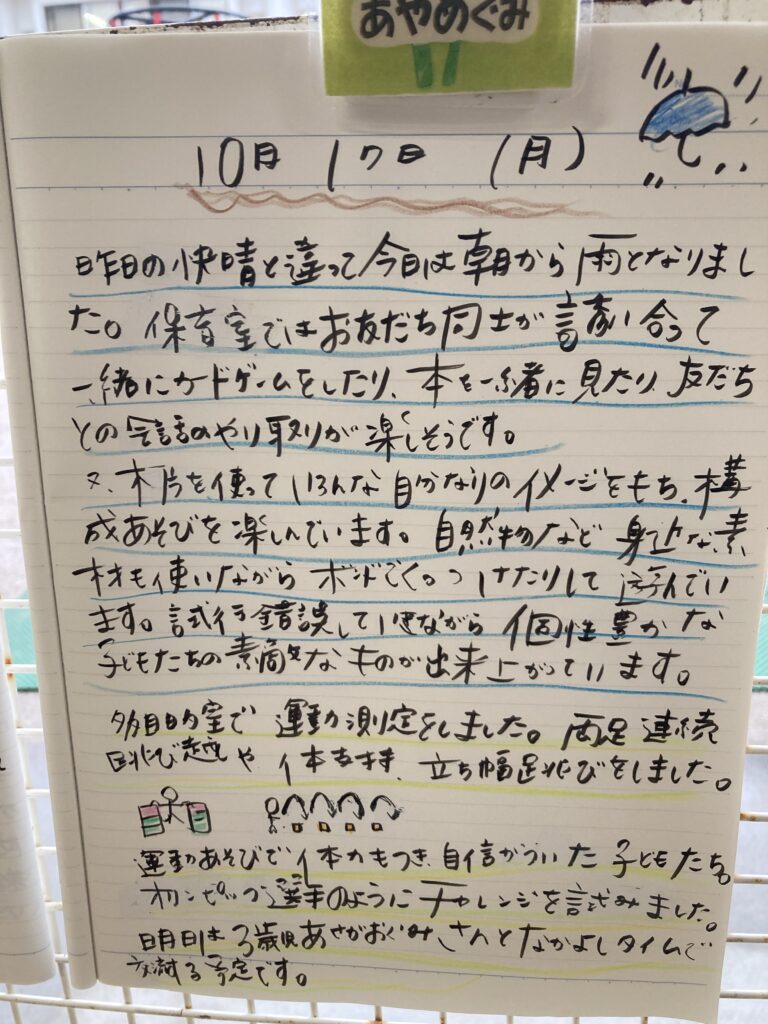 あやめぐみ
10月 17日 (月)
昨日の快晴と違って今日は朝から雨となりまし
た。保育室ではお友だち同士が誘い合って
一緒にカードゲームをしたり、本を一緒に見たり、友だち
との会話のやり取りが楽しそうです。
又、木片を使っていろんな自分なりのイメージをもち、構
成あそびを楽しんでいます。自然物など身近な素
材も使いながらボンドでくっつけたりして遊んでい
ます。試行錯誤していきながら個性豊かな
子どもたちの素敵なものが出来上がっています。
多目的室で運動測定をしました。両足連続
跳び越や体支持、立ち幅跳びをしました。
運動あそびで体力もつき、自信がついた子どもたち。
オリンピック選手のようにチャレンジを試みました。
明日は3歳児あさがおぐみさんとなかよしタイムで
交流する予定です。